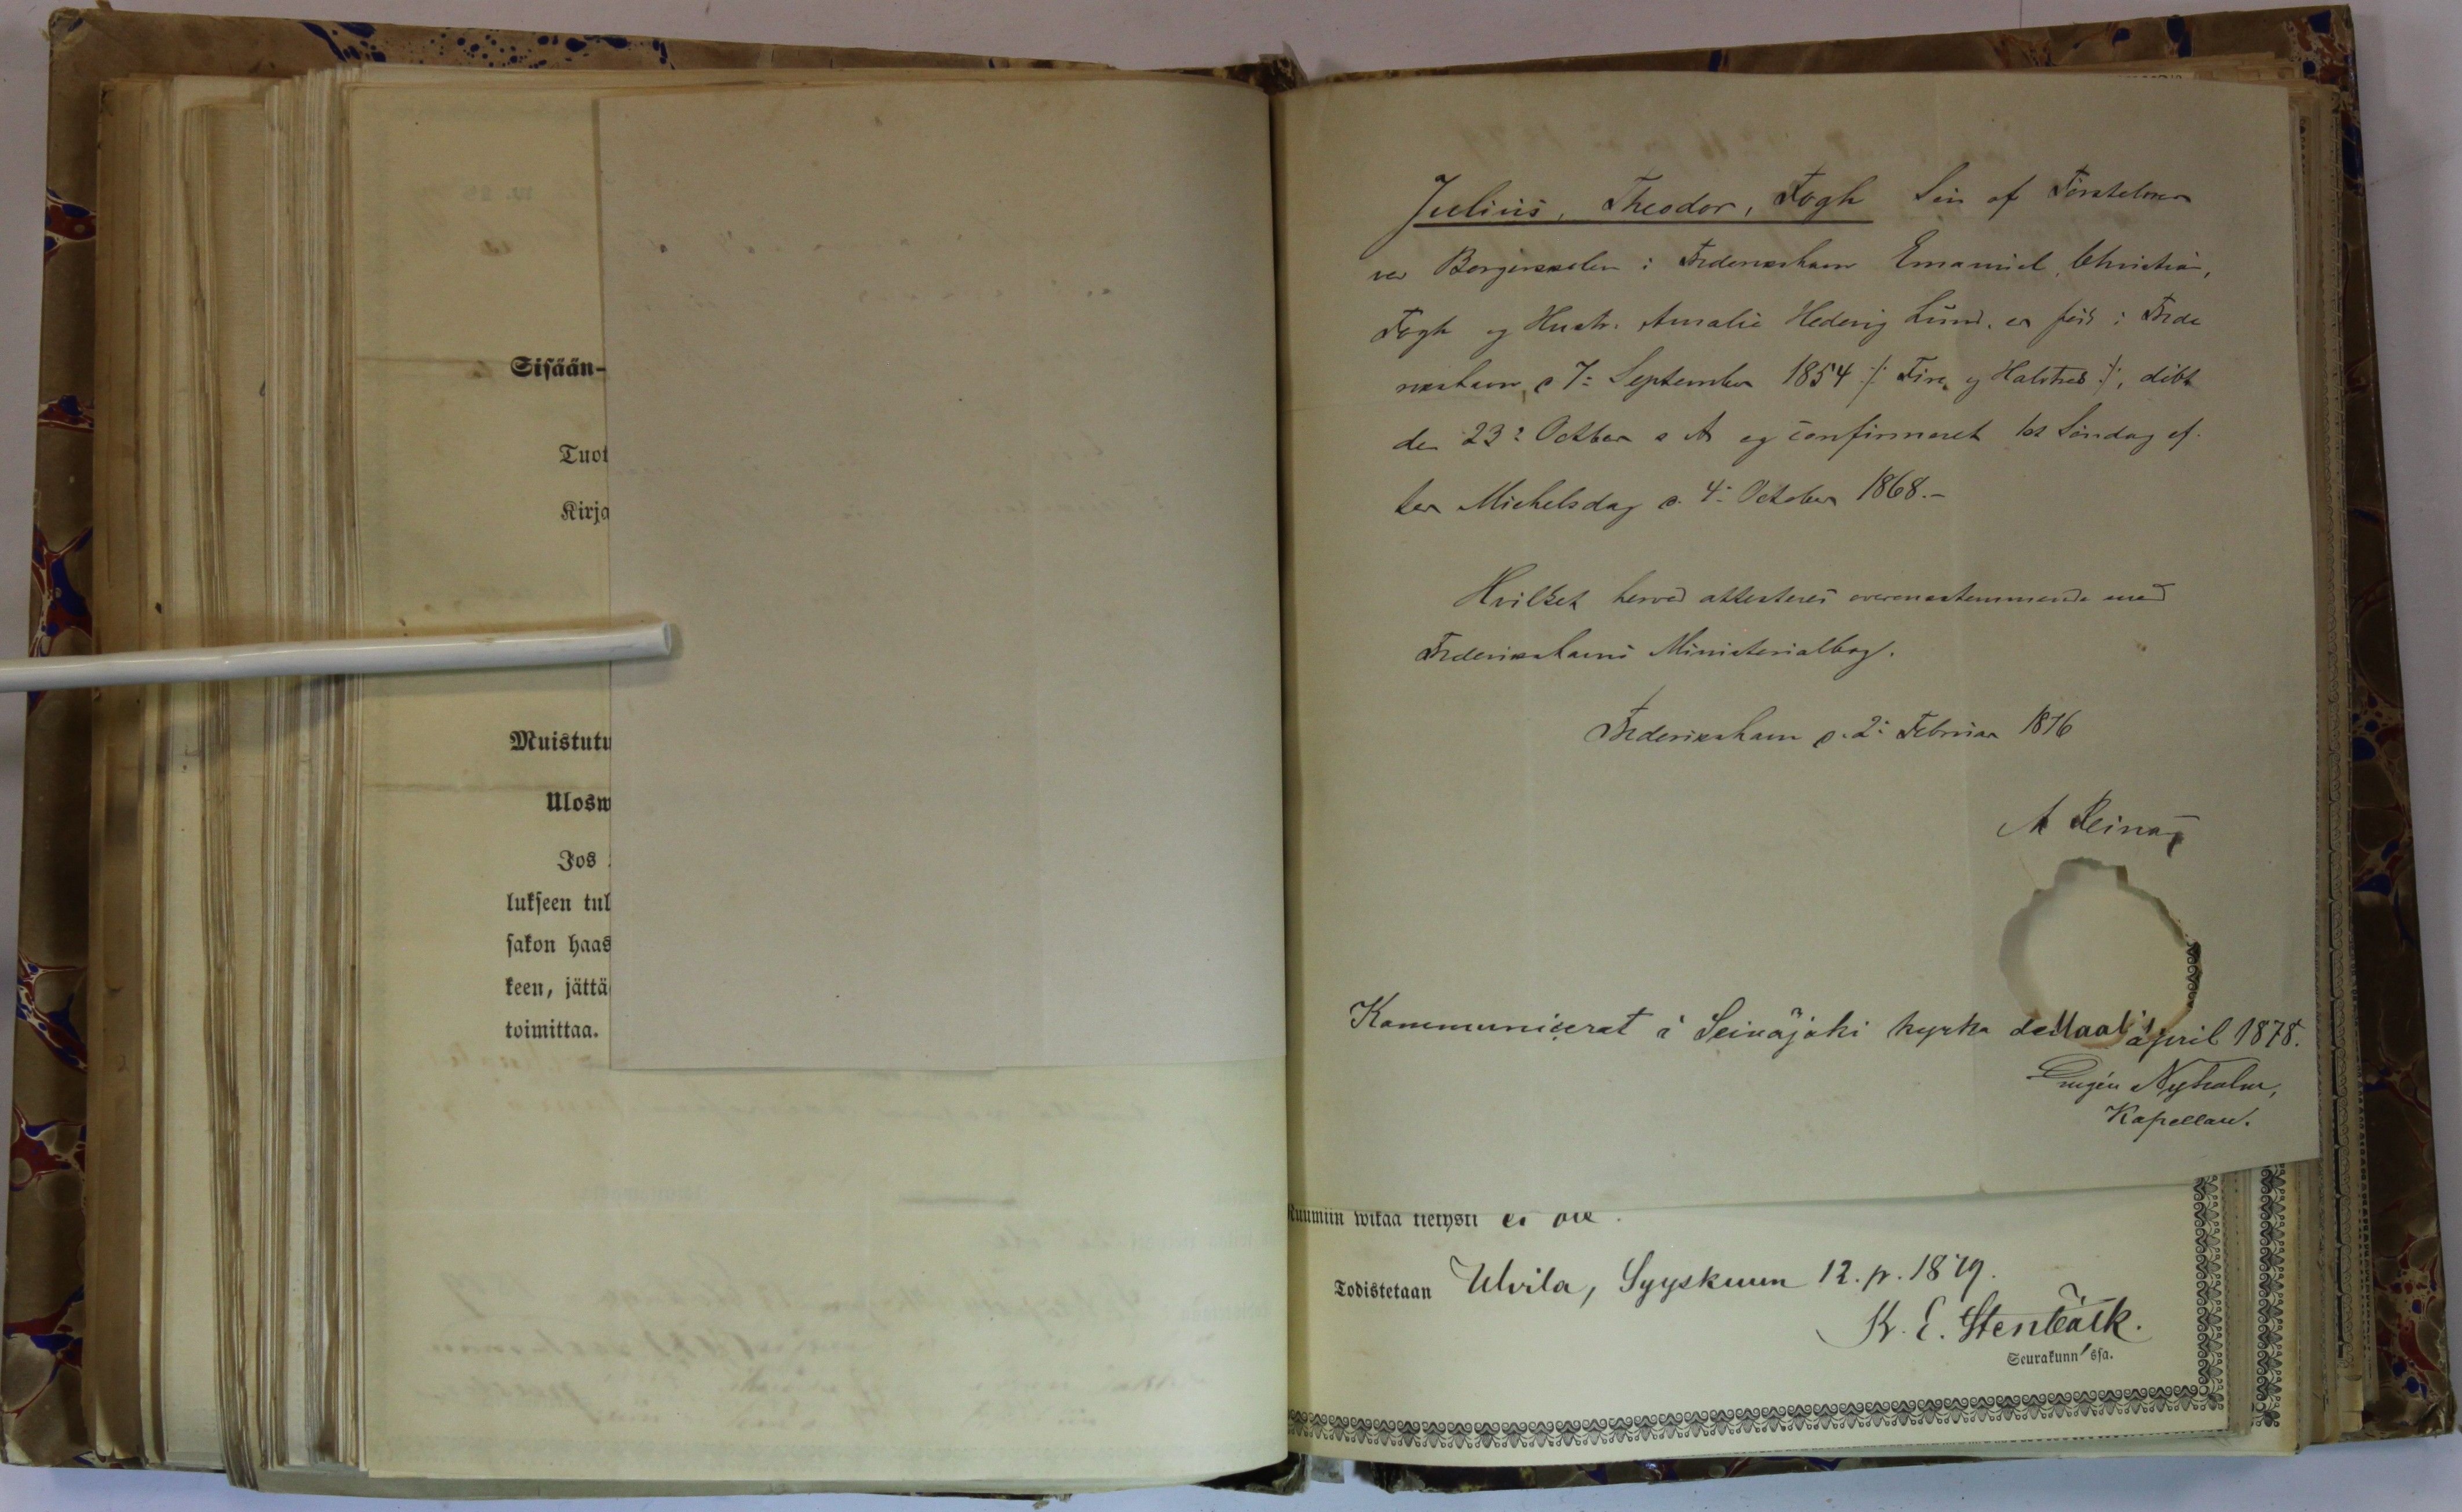 Sisään-
Tuot
Kirja
Muistutu
Ulosw
Jos
lukseen tul
sakon haas
keen, jättä
toimittaa.
Julius, Theodor, Fogh Sön af Forstelrer
ved Borgerskolen i Frederikshavn Emanuel, Christian,
Fogh og Hustr. Amalie Hedevig Lund, er født i Frede
rikshavn d 7= September 1854 /: Fire og Halvtreds :/, döbt
den 23= October s A og confirmeret 1st Söndag ef-
ter Michelsdag d. 4= October 1868.-
Hvilket herved attesteres overensstemmende med
Frederikshavns Ministerialbog.
Frederikshavn d. 2= Februar 1876
A
Kommunicerat i Seinäjoki kyrka den april 1878.
Eugén Nyholm,
Kapellan.
Ruumiin wikaa tietysti ei ole.
Todistetaan Ulvila, Syyskuun 12. p. 1879.
K. E. Stenbäck.
Seurakunn'ssa.